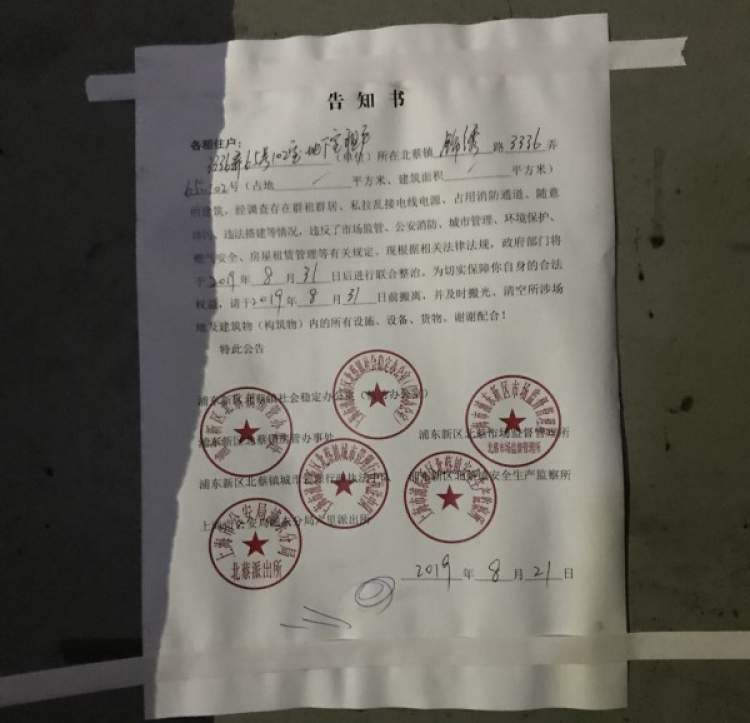 告知书
各租住户：
3336弄65号102室地下室租户（单位）所在北蔡镇 锦绣 路 3336 弄
65-102号（占地 / 平方米、建筑面积 / 平方米）
的建筑，经调查存在群租群居、私拉乱接电线电源、占用消防通道、随意
违法搭建等情况，违反了市场监管、公安消防、城市管理、环境保护、
安全、房屋租赁管理等有关规定。现根据相关法律法规，政府部门将
于2019年 8 月 31 日后进行联合整治。为切实保障你自身的合法
权益，请于2019年 8 月 31 日前搬离，并及时搬光、清空所涉场
地及建筑物（构筑物）内的所有设施、设备、货物。谢谢配合！
特此公告
浦东新区北蔡镇社会稳定办公室
浦东新区北蔡镇房管办事处 浦东新区北蔡市场监督管理所
浦东新区北蔡镇城市管理行政执法中队 浦东新区北蔡镇安全生产监察所
上海市公安局浦东分局 派出所
上海市公安局浦东分局
北蔡派出所
北蔡市场监督管理所
2019 年 8 月 21 日